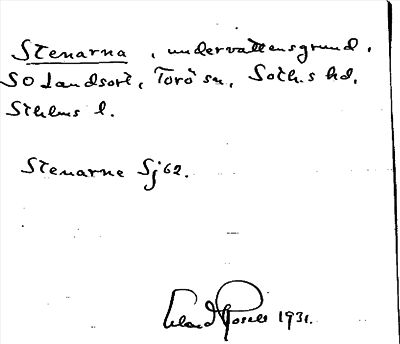 Stenarna, undervattensgrund,
SO Landsort, Torö sn, Soth.s hd,
Sthlms l.
Stenarne Sj 62.
1931.